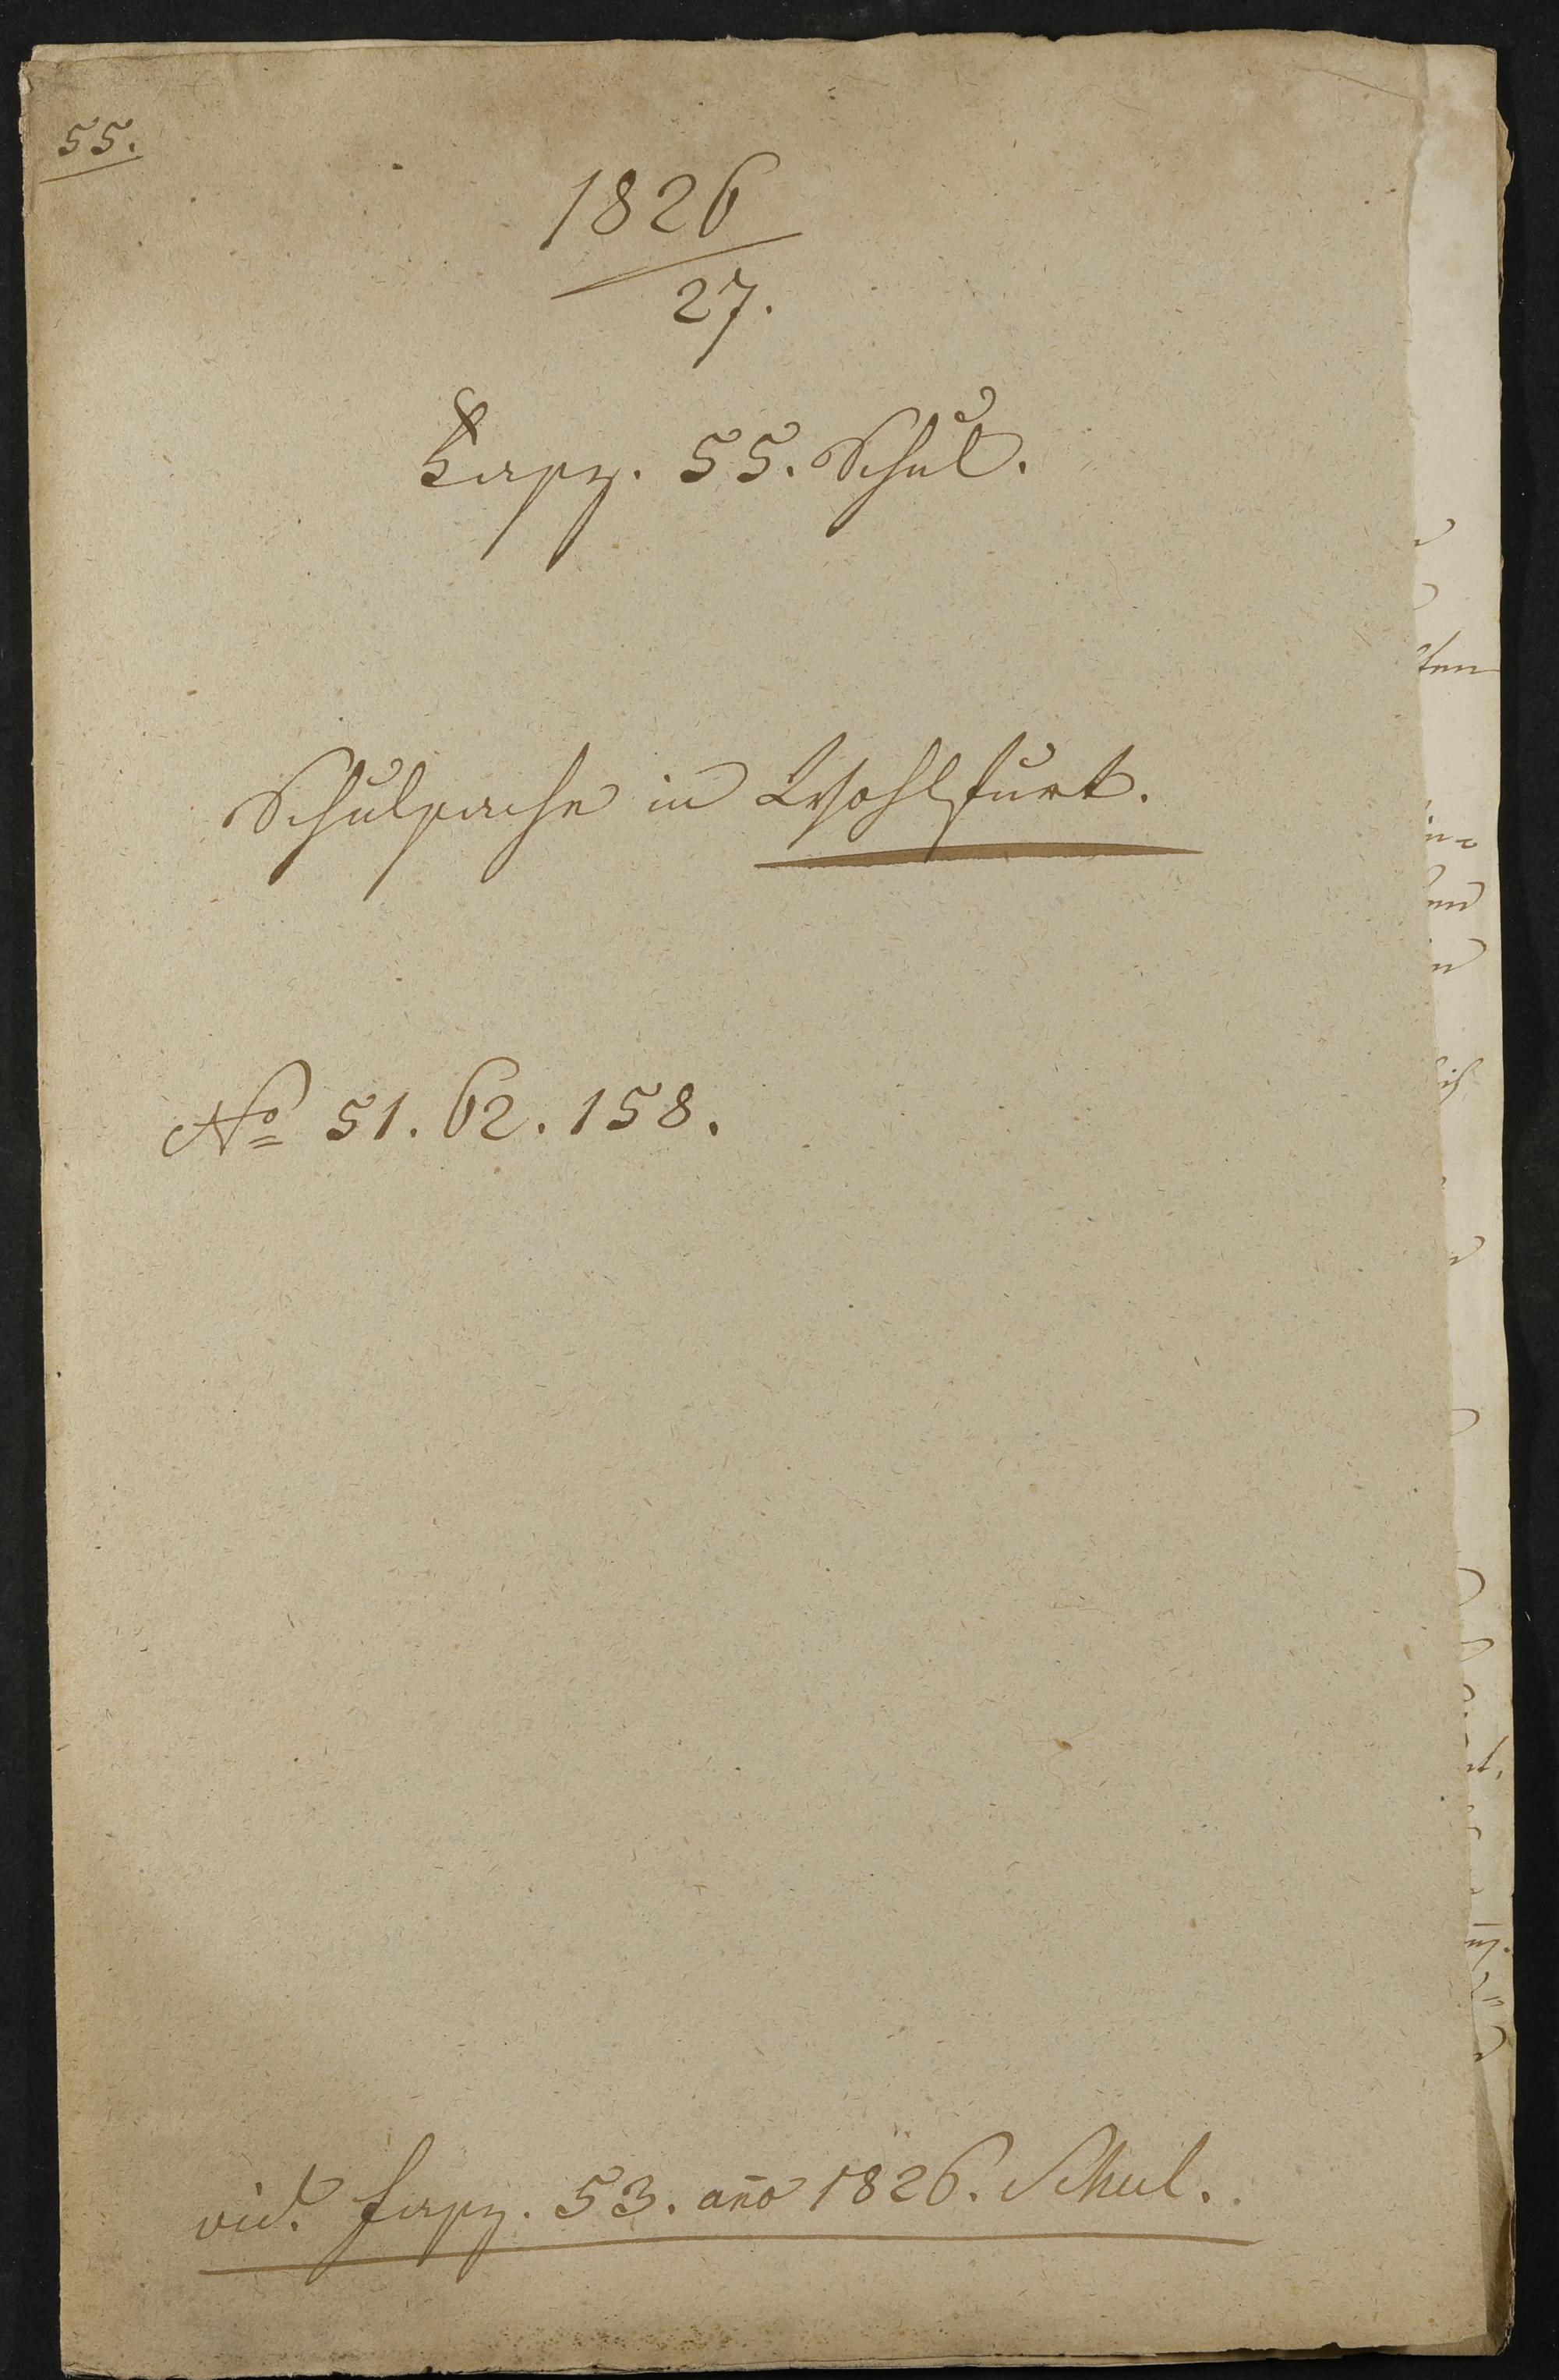 55.
1826
27.
Fasz. 55. Schul.
Schulsache in Wohlfurt.
No 51. 62. 158.
vid. Fasz. 53. año 1826. Schul.